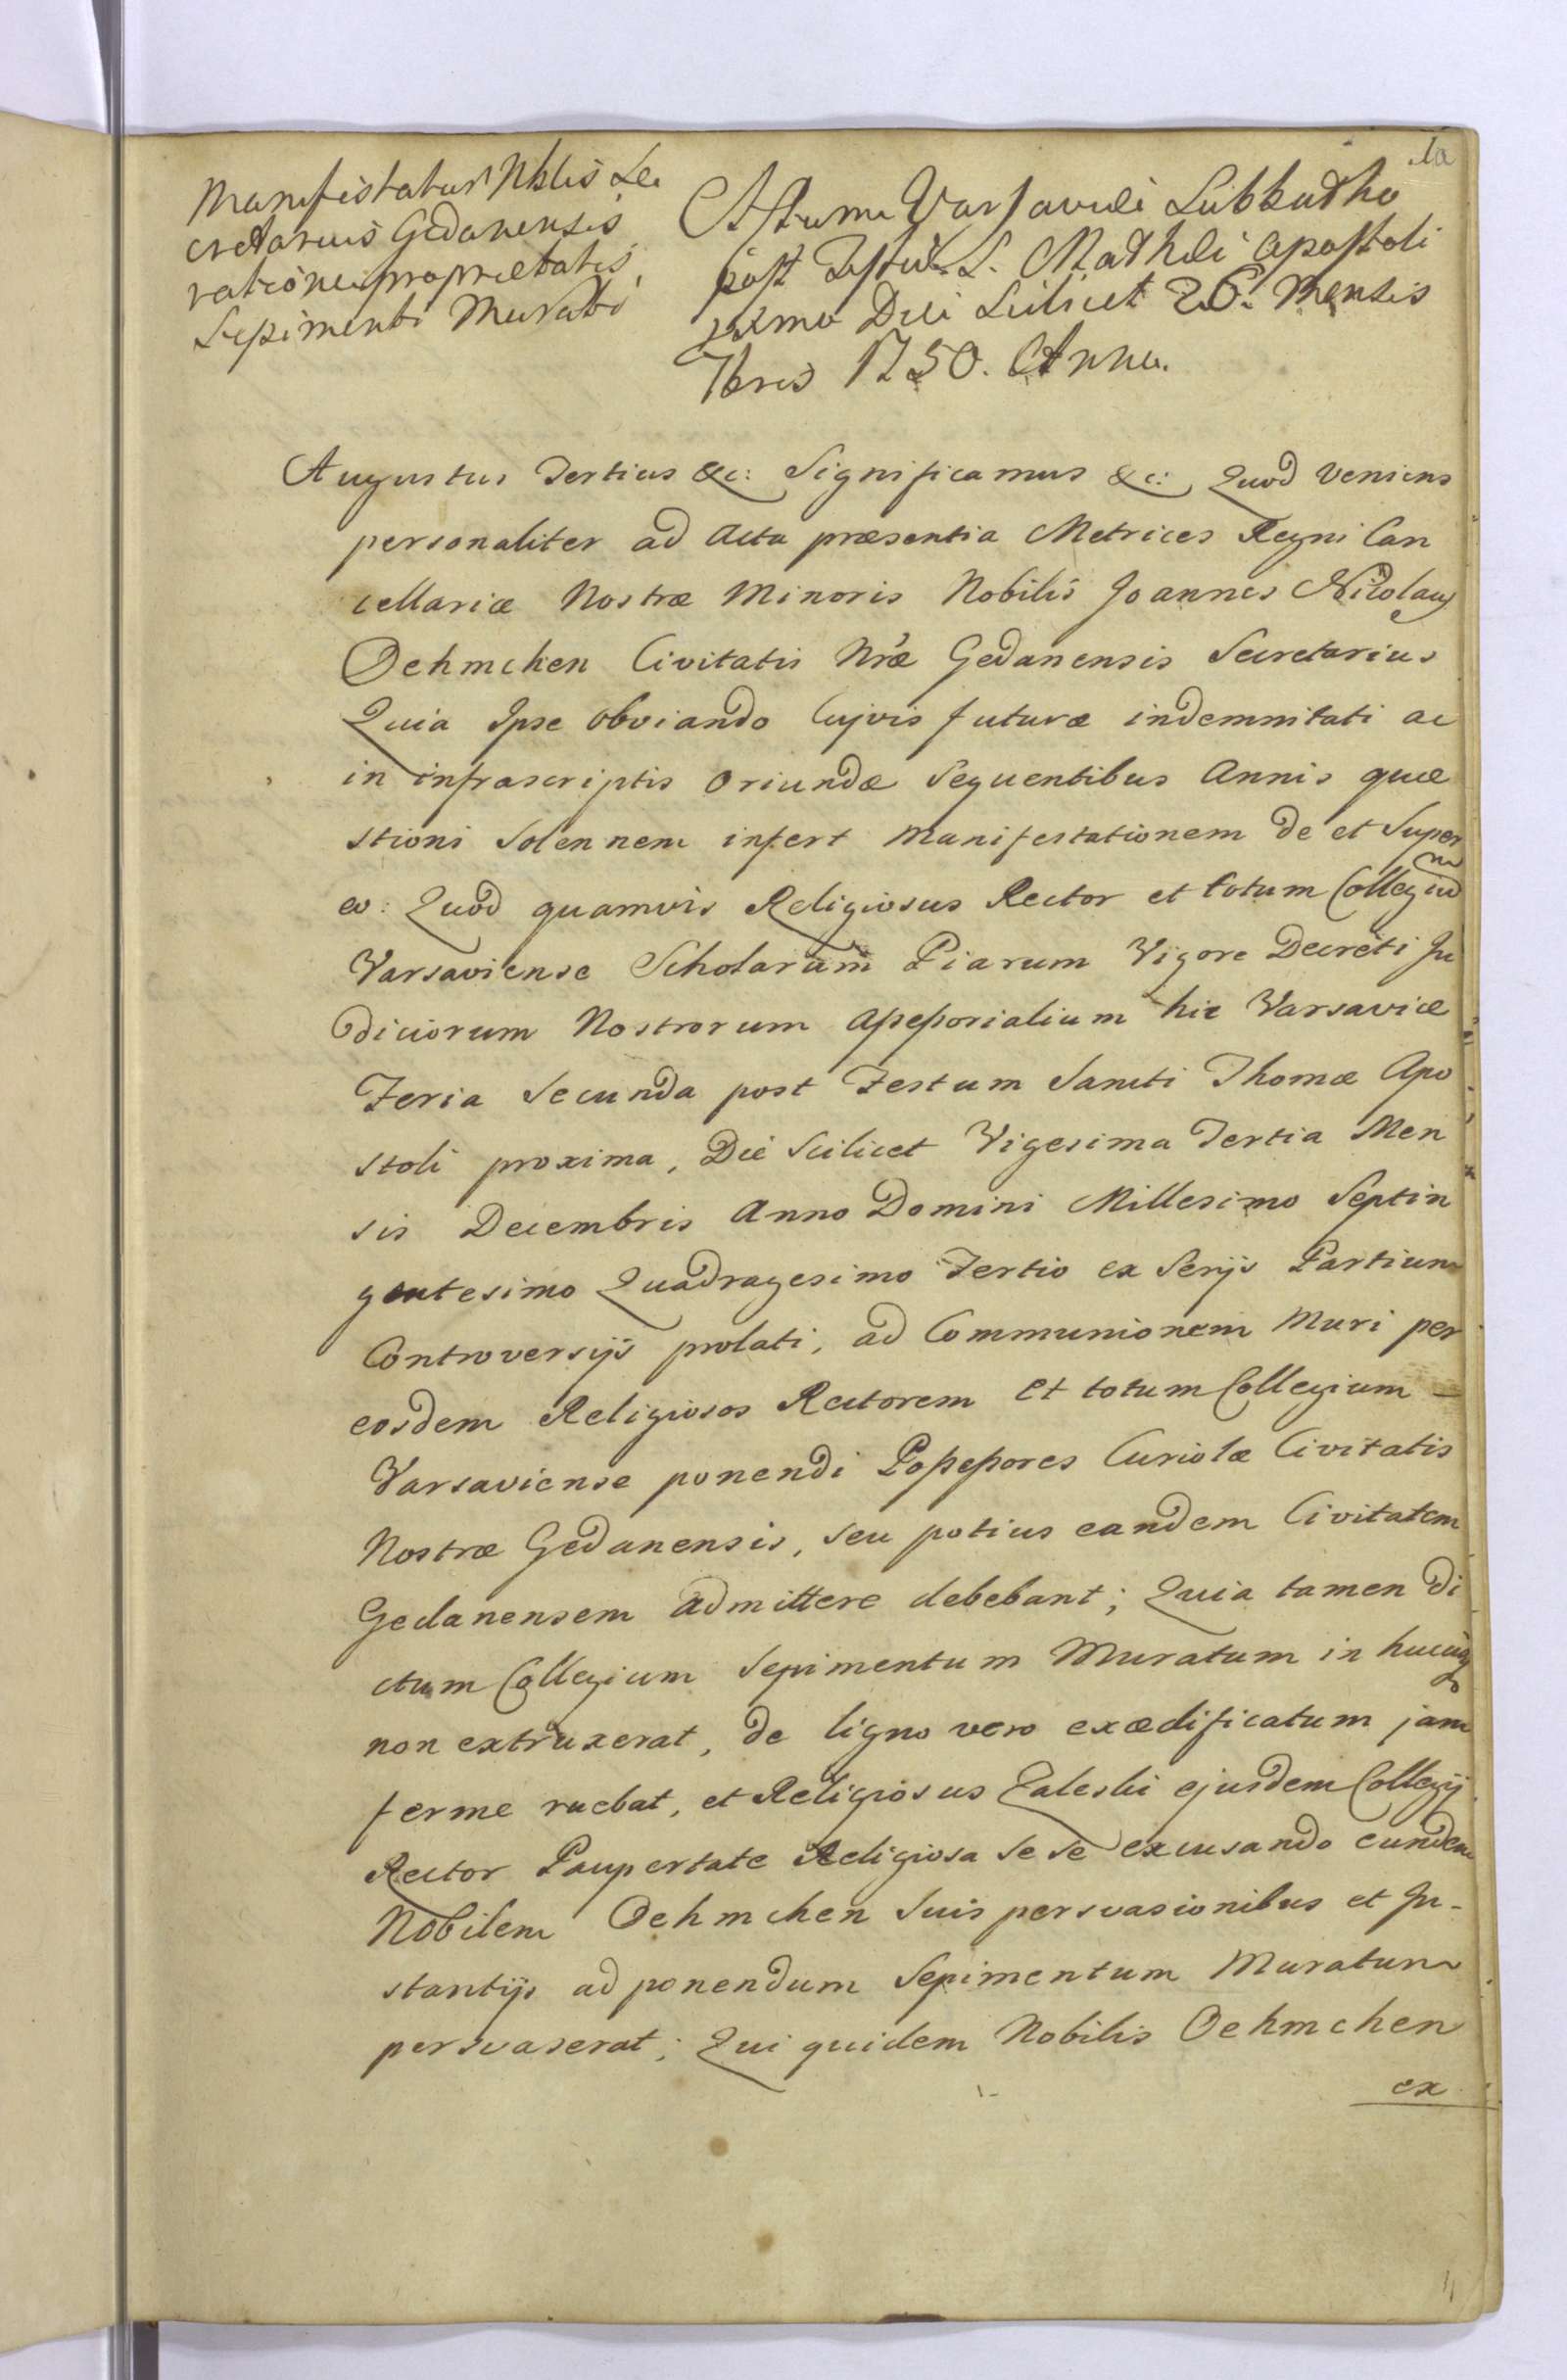 1a
Manifestatur Nblis Se
cretarius Gedanensis
ratione proprietatis
Sepimenti Murati
Actum Varsaviæ Sabbatho
post Festum S. Mathæi Apostoli
pxmo Die Scilicet 26. Mensis
7bris 1750. Anno.
Augustus Tertius &c: Significamus &c: Quod Veniens
personaliter ad Acta præsentia Metrices Regni Can
cellariæ Nostræ Minoris Nobilis Joannes Nicolaus
Oehmchen Civitatis Nræ Gedanensis Secretarius
Quia Ipse obviando Cujvis futuræ indemnitati ac
in infrascriptis oriundæ Sequentibus Annis quæ
stioni Solennem infert Manifestationem de et Super
eo: Quod quamvis Religiosus Rector et totum Collegium
Varsaviense Scholarum Piarum Vigore Decreti Ju
diciorum Nostrorum Assessorialium hic Varsaviæ
Feria Secunda post Festum Sancti Thomæ Apo
stoli proxima, Die Scilicet Vigesima Tertia Men
sis Decembris Anno Domini Millesimo Septin
gentesimo Quadragesimo Tertio ex Serijs Partium
Controversijs prolati, ad Communionem Muri per
eosdem Religiosos Rectorem et totum Collegium
Varsaviense ponendi Possessores Curiolæ Civitatis
Nostræ Gedanensis, seu potius eandem Civitatem
Gedanensem admittere debebant; Quia tamen di
ctum Collegium Sepimentum Muratum in hucusq
non extruxerat, de ligno vero exædificatum jam
ferme ruebat, et Religiosus Zaleski ejusdem Collegij
Rector Paupertate Religiosa se se excusando eundem
Nobilem Oehmchen Suis persvasionibus et In-
stantijs ad ponendum Sepimentum Muratum
persvaserat; Qui quidem Nobilis Oehmchen
ex